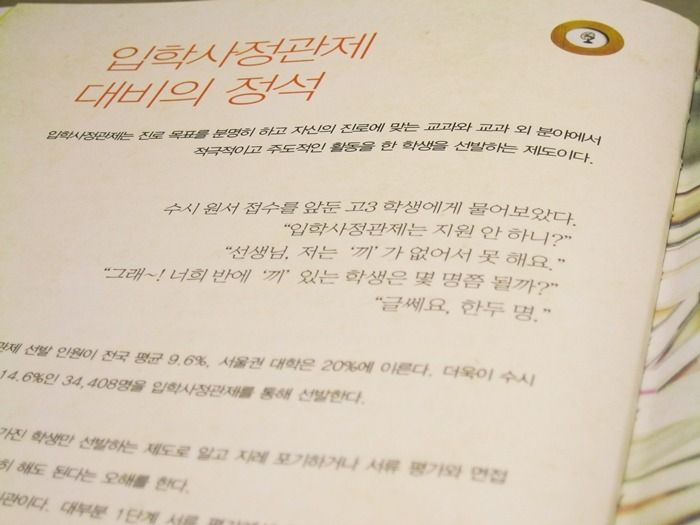 입학사정관제
대비의 정석
입학사정관제는 진로 목표를 분명히 하고 자신의 진로에 맞는 교과와 교과 외 분야에서
적극적이고 주도적인 활동을 한 학생을 선발하는 제도이다.
수시 원서 접수를 앞둔 고3 학생에게 물어보았다.
“입학사정관제는 지원 안 하니?”
“선생님, 저는 ‘끼’가 없어서 못 해요.”
“그래~! 너희 반에 ‘끼’ 있는 학생은 몇 명쯤 될까?”
“글쎄요, 한두 명.”
관제 선발 인원이 전국 평균 9.6%, 서울권 대학은 20%에 이른다. 더욱이 수시
14.6%인 34,408명을 입학사정관제를 통해 선발한다.
가진 학생만 선발하는 제도로 알고 지레 포기하거나 서류 평가와 면접
히 해도 된다는 오해를 한다.
관이다. 대부분 1단계 서류